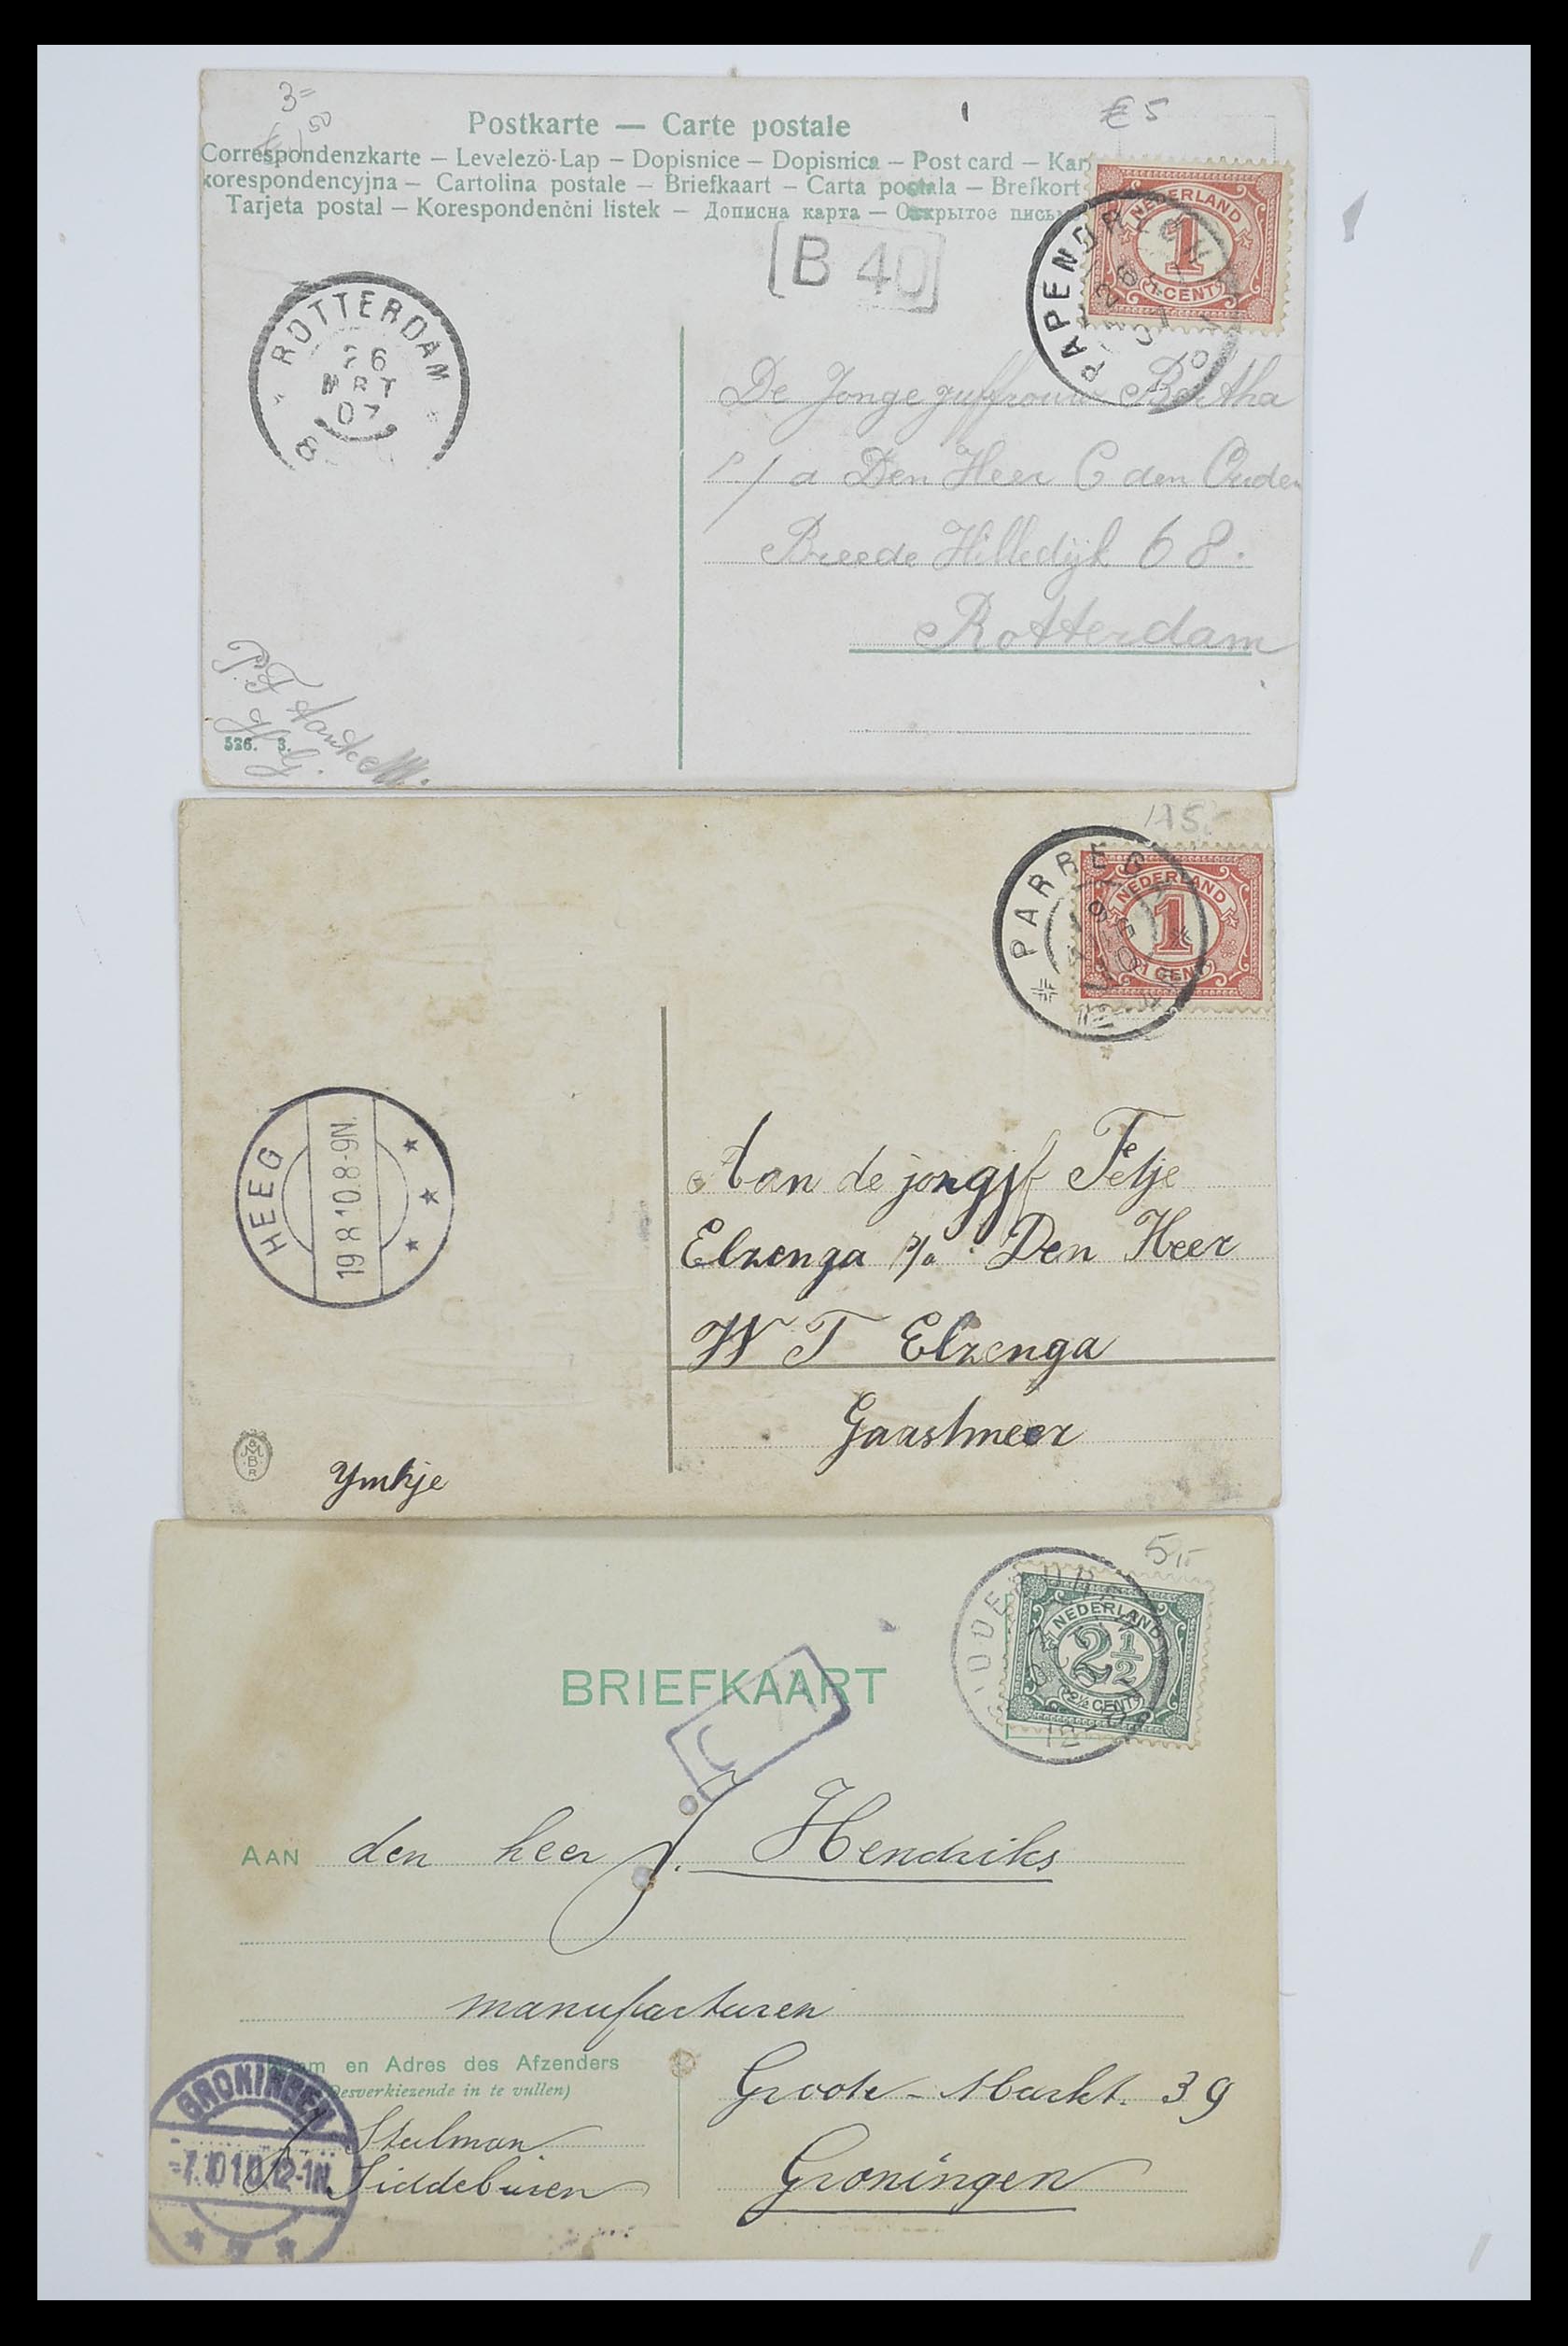 3=
50
€ 5
Postkarte — Carte postale
Correspondenzkarte — Levelezö-Lap — Dopisnice — Dopisnica — Post card — Kar
korespondencyjna — Cartolina postale — Briefkaart — Carta postala — Brefkort
Tarjeta postal — Korespondenčni listek — Дописна карта — Открытое письм
NEDERLAND
1
1 CENT
PAPENDRECHT
26
07
B 40
ROTTERDAM
26
MRT
07
8
De Jongejuffrouw Bertha
p/a Den Heer C den Ouden
Breede Hilledijk 68.
Rotterdam
P.F.
526. 3.
NEDERLAND
1
1 CENT
PARREG
HEEG
19 8 10.8-9N.
Aan de jongjf Fetje
Elzenga p/a Den Heer
W T Elzenga
Gaastmeer
MBR
Ymkje
5,-
NEDERLAND
2½
2½ CENT
BRIEFKAART
C
AAN den heer J. Hendriks
manufacturen
en Adres des Afzenders
(Desverkiezende in te vullen)
Groote-Markt. 39
Groningen
Stulman
Siddeburen
GRONINGEN
-7.10 10.12-1N